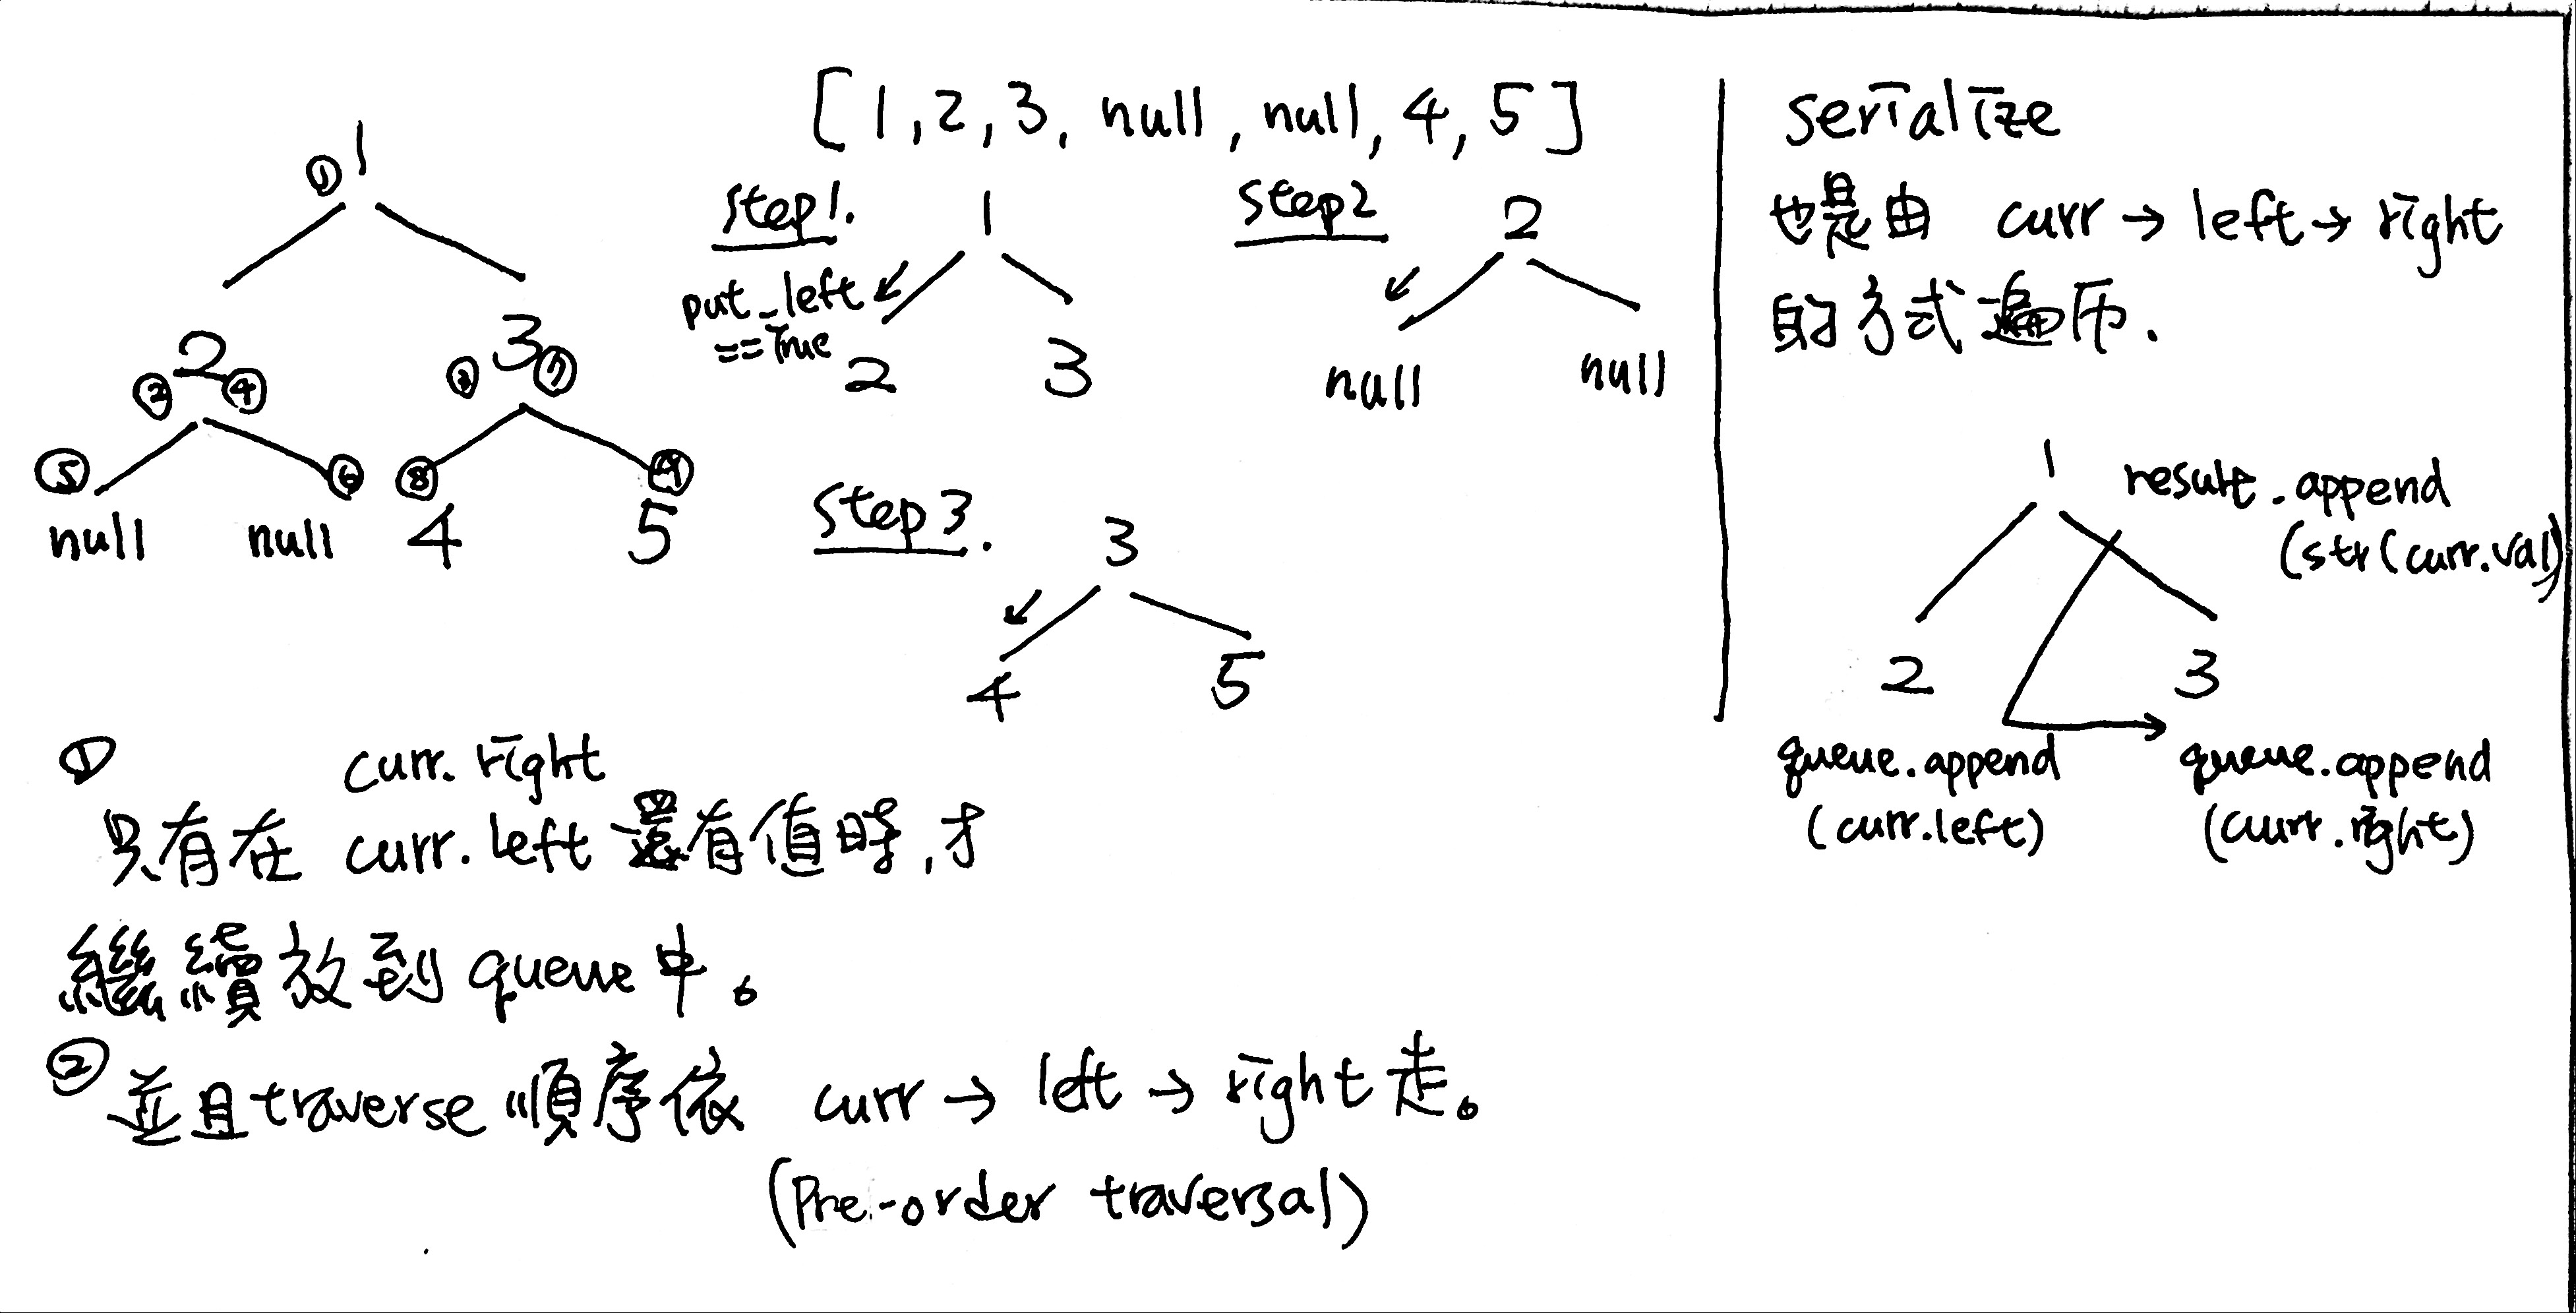 [1,2,3, null, null, 4, 5]
1
①
2
3
②
④
③
⑦
⑤
⑥
⑧
⑨
null
null
4
5
step1.
1
put_left
==True
2
3
step2
2
null
null
step3.
3
4
5
①
curr.right
只有在 curr.left 還有值時,才
繼續放到 queue 中。
② 並且 traverse 順序依 curr → left → right 走。
(Pre-order traversal)
serialize
也是由 curr → left → right
的方式遍历.
1
result.append
(str(curr.val)
2
3
queue.append
(curr.left)
queue.append
(curr.right)